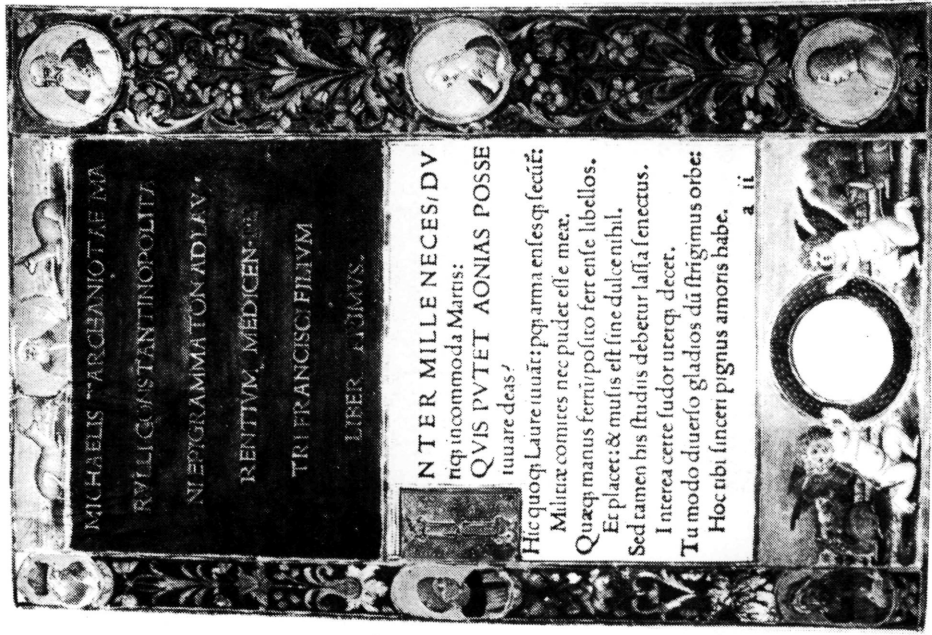 MICHAELIS TARCHANIOTAE MA
RVLLI CONSTANTINOPOLITA
NI EPYGRAMMATON AD LAV
RENTIVM MEDICEN
TRI FRANCISCI FILIVM
LIBER PRIMVS.
NTER MILLE NECES/ DV
riq; incommoda Martis:
QVIS PVTET AONIAS POSSE
iuuare deas?
Hic quoq; Laure iuuāt: ptq; arma ensesq; secūt̄:
Militiæ comites nec pudet esse meæ.
Quæq; manus ferrū/ posito fert ense libellos.
Et placet: & musis est sine dulce nihil.
Sed tamen his studiis debetur lassa senectus.
Interea certe sudor uterq; decet.
Tu modo diuerso gladios dū strigimus orbe:
Hoc tibi sinceri pignus amoris habe.
a ii